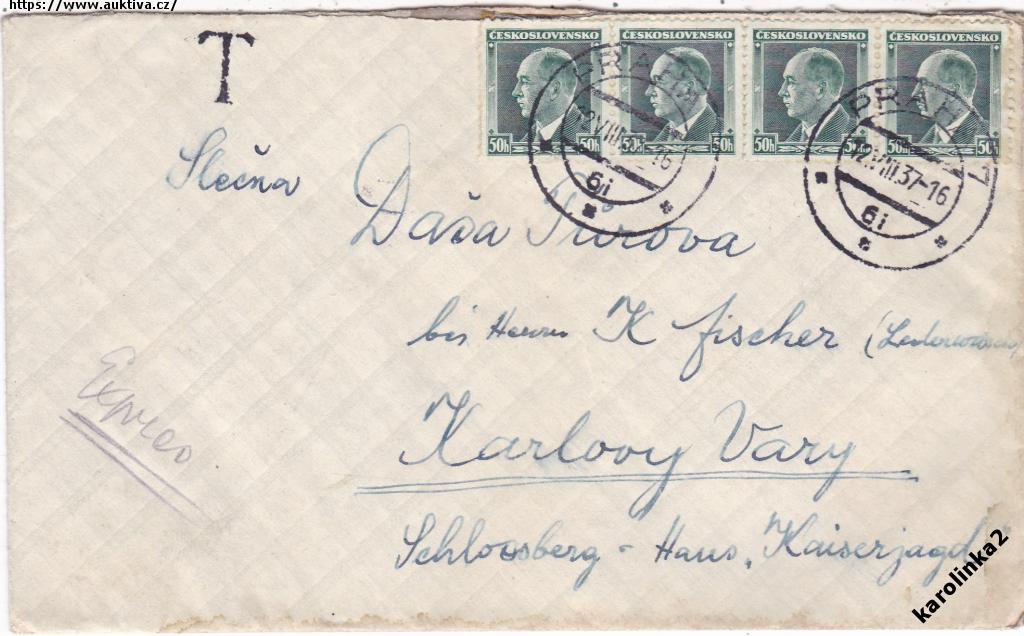 https://www.auktiva.cz/
T
ČESKOSLOVENSKO ČESKOSLOVENSKO ČESKOSLOVENSKO ČESKOSLOVENSKO
50h 50h 50h 50h 50h 50h 50h
PRAHA
6i
PRAHA 7
12.VIII.37-16
6i
Slečna
Daša Půrova
bei Herrn K Fischer
Expres
Karlovy Vary
Schlossberg - Haus "Kaiserjagd
karolinka2